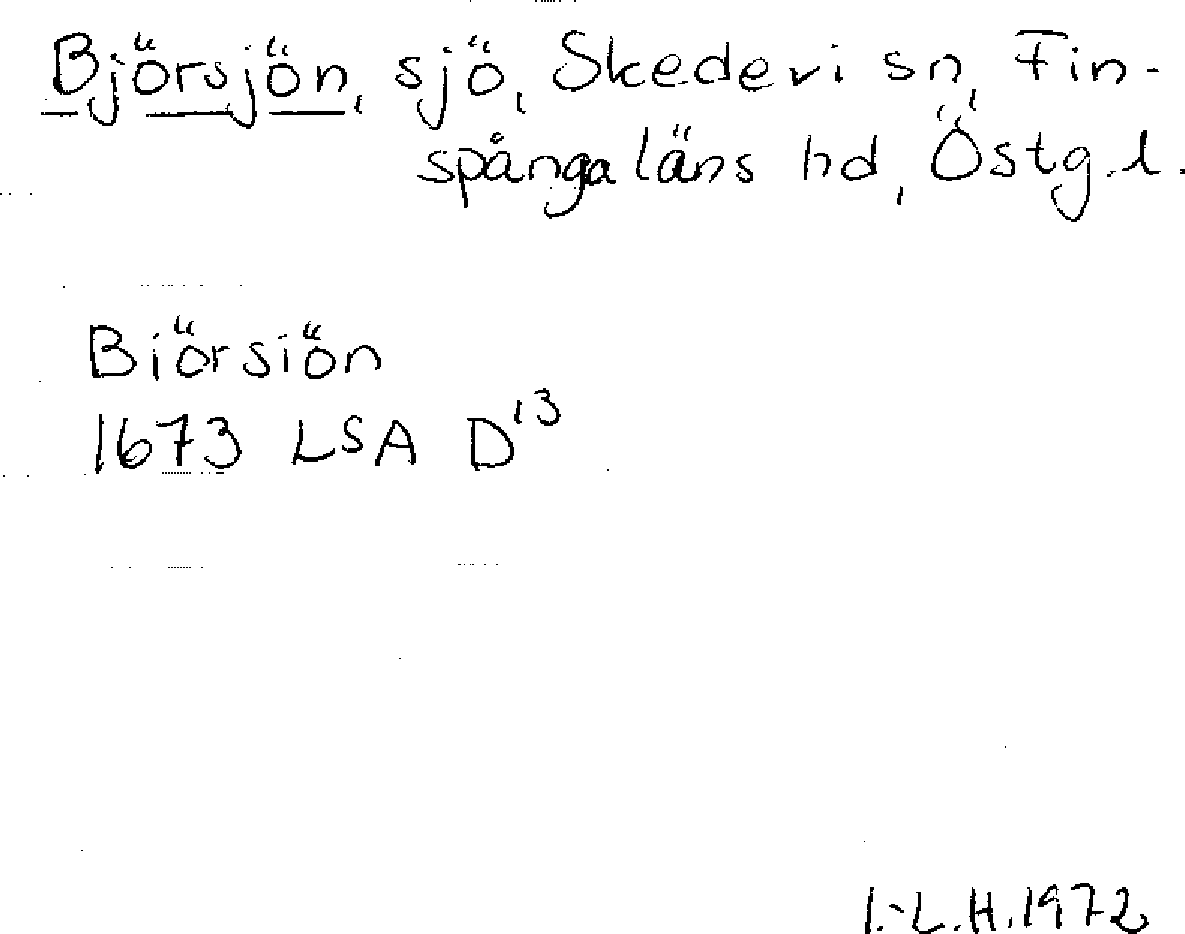 Björsjön, sjö, Skedevi sn, Fin-
spånga läns hd, Östg.l.
Biörsiön
1673 LSA D13
I.-L.H.1972